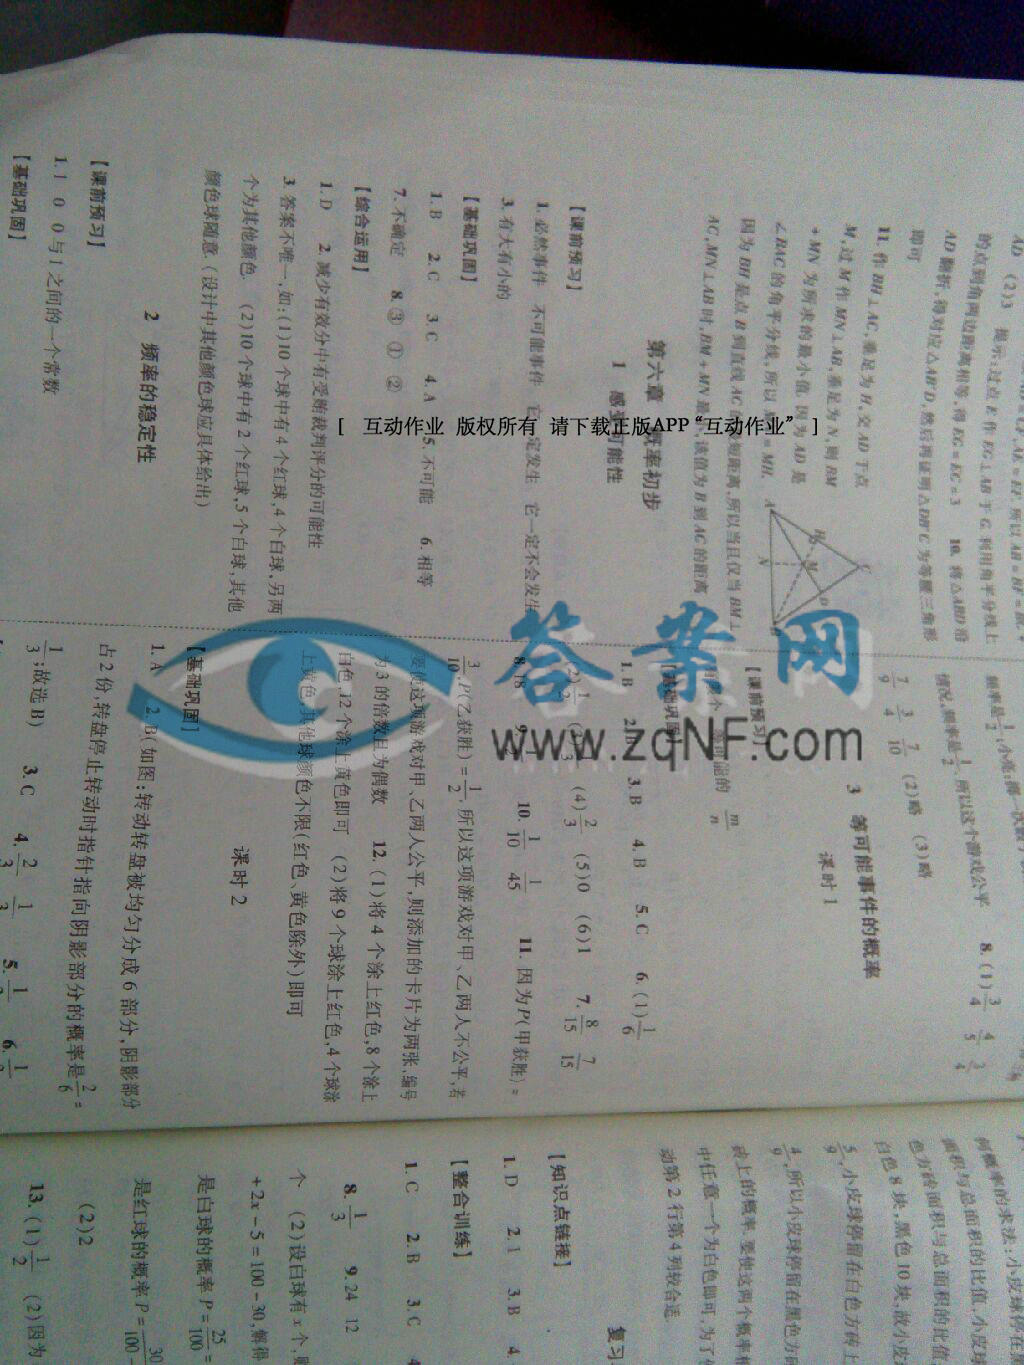 AD (2)3 提示:过点 E 作 EG⊥AB 于 G,利用角平分线上
的点到角两边距离相等,得 EG=EC=3 10. 将△ABD 沿
AD 翻折,得对应△AB'D,然后再证明△DB'C 为等腰三角形
即可
11. 作 BH⊥AC,垂足为 H,交 AD 于点
M,过 M 作 MN⊥AB,垂足为 N,则 BM
+MN 为所求的最小值. 因为 AD 是
∠BAC 的角平分线,所以
因为 BH 是点 B 到直线 AC 的最短距离,所以当且仅当 BM⊥
AC,MN⊥AB 时,BM+MN 最小,该值为 B 到 AC 的距离
第六章 概率初步
1 感受可能性
【课前预习】
1. 必然事件 不可能事件 它一定发生 它一定不会发生
3. 有大有小的
【基础巩固】
1. B 2. C 3. C 4. A 5. 不可能 6. 相等
7. 不确定 8. ③ ① ②
【综合运用】
1. D 2. 减少有效分中有受贿裁判评分的可能性
3. 答案不唯一,如:(1)10 个球中有 4 个红球,4 个白球,另两
个为其他颜色. (2)10 个球中有 2 个红球,5 个白球,其他
颜色球随意.(设计中其他颜色球应具体给出)
2 频率的稳定性
【课前预习】
1. 1 0 0 与 1 之间的一个常数
【基础巩固】
情况,概率是1/2. 所以这个游戏公平 8. (1)3/4 4/5 3/4
7/9 3/4 7/10 (2)略 (3)略
3 等可能事件的概率
课时 1
【课前预习】
等可能的 m/n
【基础巩固】
1. B 3. B 4. B 5. C 6. (1)1/6
(4)2/3 (5)0 (6)1 7. 8/15 7/15
8. 18 10. 1/10 1/45 11. 因为 P(甲获胜)=
3/10, P(乙获胜)=1/2, 所以这项游戏对甲、乙两人不公平,若
要使这项游戏对甲、乙两人公平,则添加的卡片为两张,编号
为 3 的倍数且为偶数 12. (1)将 4 个涂上红色,8 个涂上
白色,12 个涂上黄色即可 (2)将 9 个球涂上红色,4 个球涂
上黄色,其他球颜色不限(红色、黄色除外)即可
课时 2
【基础巩固】
1. A 2. B(如图:转动转盘被均匀分成 6 部分,阴影部分
占 2 份,转盘停止转动时指针指向阴影部分的概率是2/6=
1/3;故选 B) 3. C 4. 2/3 1/3 5. 6.
何概率的求法:小皮球停在
面积与总面积的比值,小皮球
色方砖面积与总面积的比值
白色 8 块,黑色 10 块,故小皮
5/9,小皮球停留在白色方砖上
4/9,所以小皮球停留在黑色方
砖上的概率,要使这两个概率相
中任意一个为白色即可,为了
动第 2 行第 4 列较合适.
复习
【知识点链接】
1. D 2. 1 3. B 4.
【整合训练】
1. C 2. B 3. C 4
8. 1/3 9. 24 12
个 (2)设白球有 x 个,
+2x-5=100-30,解得
是白球的概率 P=25/100=
是红球的概率 P=30/100
(2)2
13. (1)1/2 (2)因为
A
B
C
D
H
M
N
[ 互动作业 版权所有 请下载正版APP“互动作业” ]
答案网
www.zqNF.com